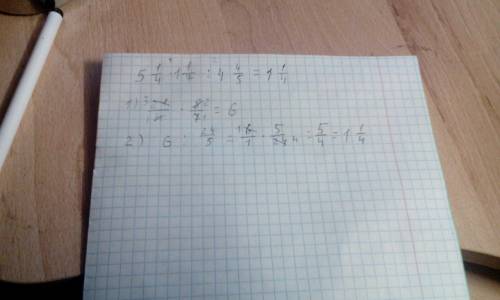 5 1/4 · 1 1/7 : 4 4/5 = 1 1/4
1) · = 6
2) 6 · 24/5 = 6/1 · 5/24 = 5/4 = 1 1/4